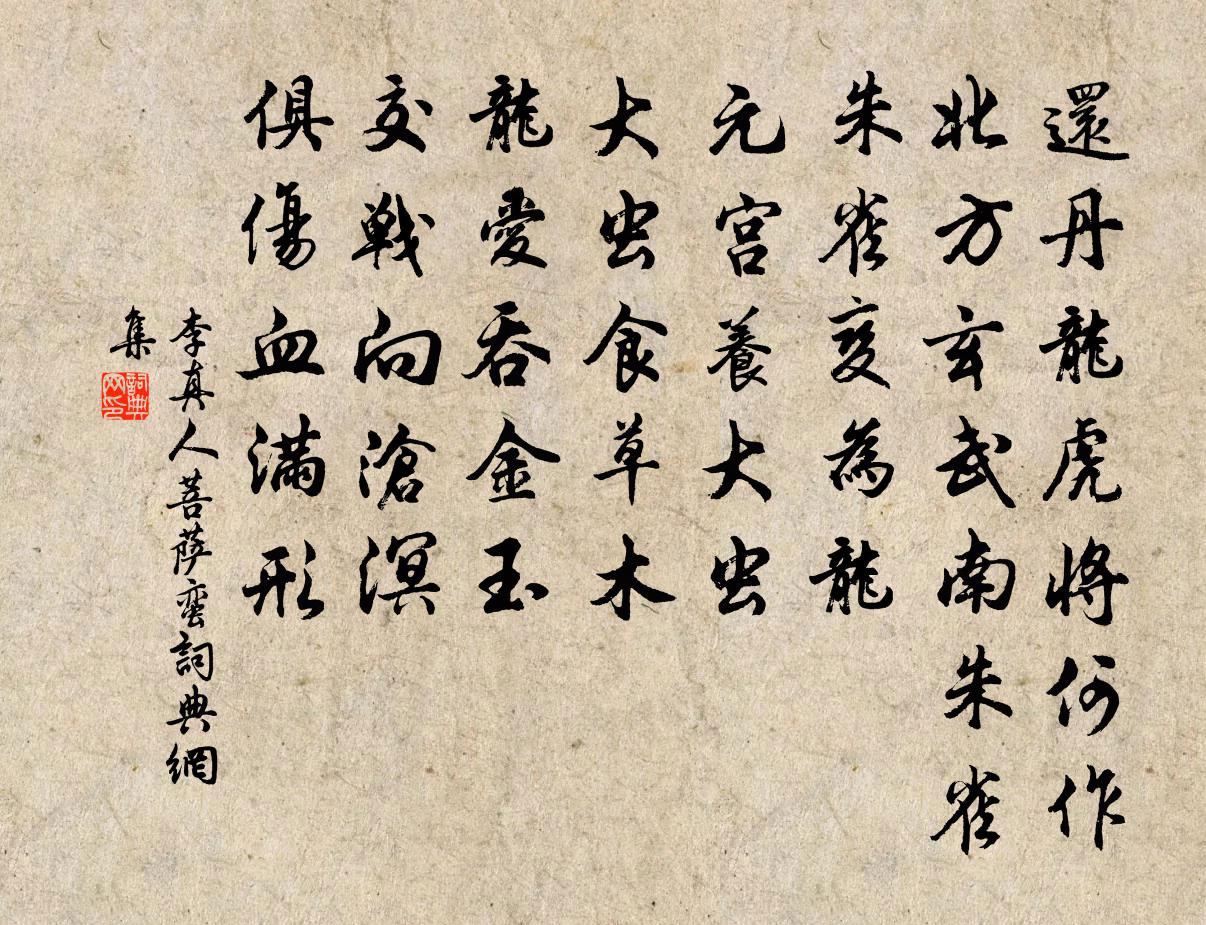 還丹龍虎將何作
北方玄武南朱雀
朱雀变為龍
元宫養大虫
大虫食草木
龍愛吞金玉
交戰向滄溟
俱傷血滿形
李真人菩萨蛮詞典網
集
詞典
网印